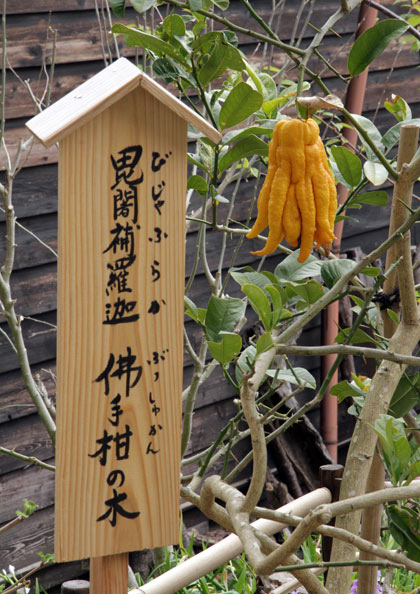 毘闍補羅迦
びじゃふらか
佛手柑の木
ぶっしゅかん